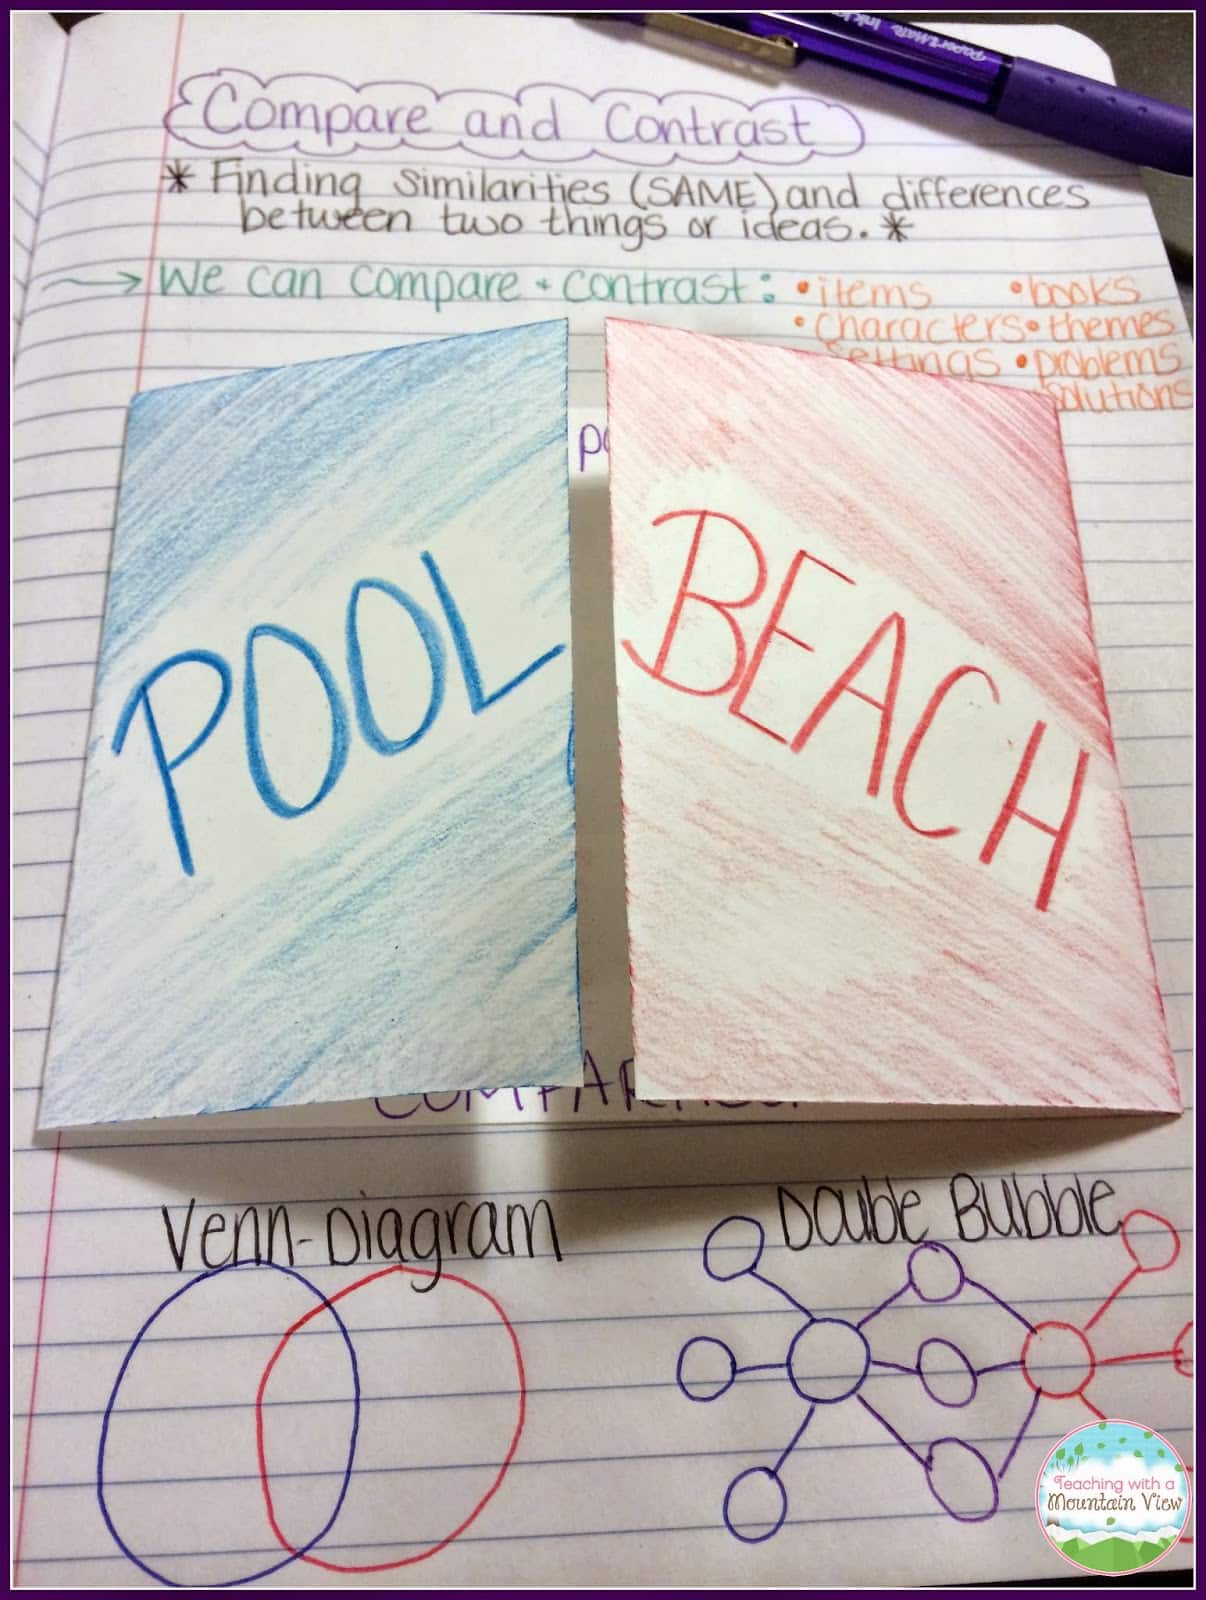 PaperMate Ink
Compare and Contrast
* Finding similarities (SAME) and differences
between two things or ideas. *
→ We can compare + contrast: • items • books
• characters • themes
settings • problems
solutions
POOL
BEACH
Venn-Diagram
Double Bubble
Teaching with a
Mountain View